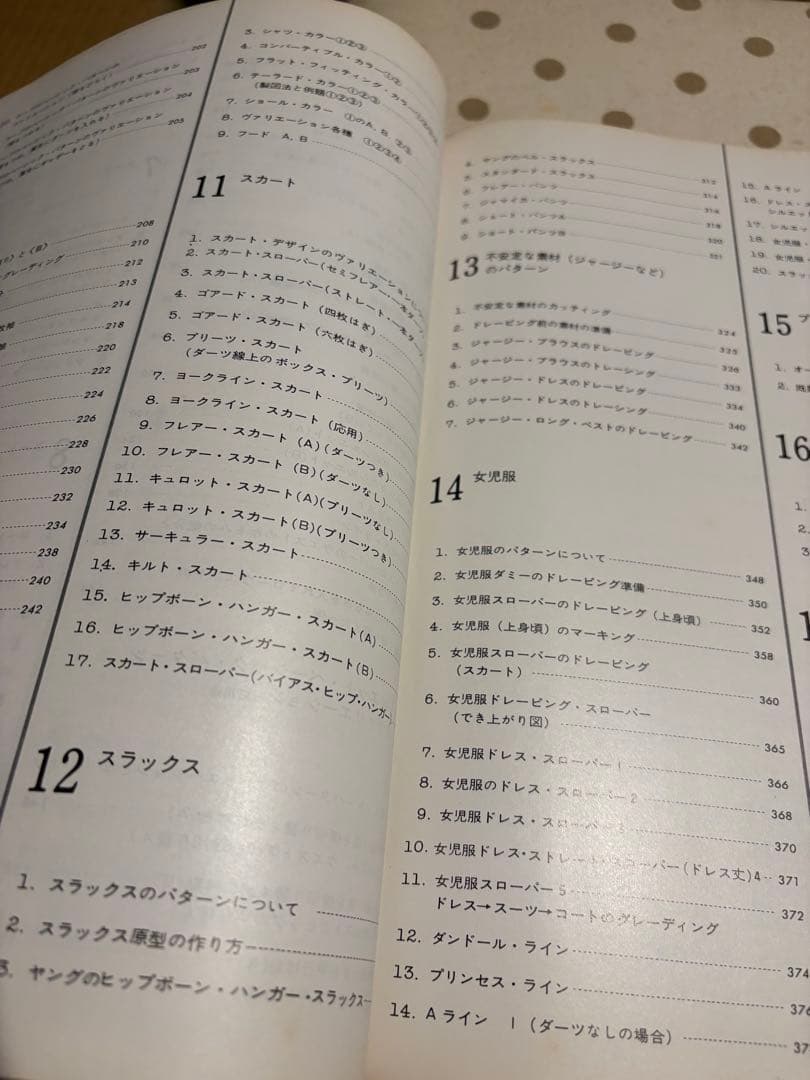 202
ーンのヴァリエーション
203
204
ヴァリエーション
205
208
210
グレーディング
212
213
214
218
220
222
224
226
228
230
232
234
238
240
242
3. シャツ・カラー①②③
4. コンバーティブル・カラー①②
5. フラット・フィッティング・カラー
6. テーラード・カラー①②③
(製図法と例題①②③)
7. ショール・カラー ①のA, B
8. ヴァリエーション各種 ①②③④
9. フード A, B
11 スカート
1. スカート・デザインのヴァリエーションに
2. スカート・スローパー(セミフレアー・
3. スカート・スローパー(ストレート・
4. ゴアード・スカート (四枚はぎ)
5. ゴアード・スカート (六枚はぎ)
6. プリーツ・スカート
(ダーツ線上の ボックス・プリーツ)
7. ヨークライン・スカート
8. ヨークライン・スカート (応用)
9. フレアー・スカート (A)(ダーツつき)
10. フレアー・スカート (B)(ダーツなし)
11. キュロット・スカート(A)(プリーツなし)
12. キュロット・スカート(B)(プリーツつき)
13. サーキュラー・スカート
14. キルト・スカート
15. ヒップボーン・ハンガー・スカート(A)
16. ヒップボーン・ハンガー・スカート(B)
17. スカート・スローパー(バイアス・ヒップ・ハンガー)
12 スラックス
1. スラックスのパターンについて
2. スラックス原型の作り方
3. ヤングのヒップボーン・ハンガー・スラックス
4. ヤングのベル・スラックス 312
5. スタンダード・スラックス 314
6. フレアー・パンツ 316
7. ジャマイカ・パンツ 318
8. ショート・パンツA 320
9. ショート・パンツB 321
13 不安定な素材(ジャージーなど)
のパターン
1. 不安定な素材のカッティング 324
2. ドレーピング前の素材の準備 325
3. ジャージー・ブラウスのドレーピング 326
4. ジャージー・ブラウスのトレーシング 333
5. ジャージー・ドレスのドレーピング 334
6. ジャージー・ドレスのトレーシング 340
7. ジャージー・ロング・ベストのドレーピング 342
14 女児服
1. 女児服のパターンについて 348
2. 女児服ダミーのドレーピング準備 350
3. 女児服スローパーのドレーピング (上身頃) 352
4. 女児服 (上身頃) のマーキング 358
5. 女児服スローパーのドレーピング
(スカート) 360
6. 女児服ドレーピング・スローパー
(でき上がり図) 365
7. 女児服ドレス・スローパー1 366
8. 女児服のドレス・スローパー2 368
9. 女児服ドレス・スローパー3 370
10. 女児服ドレス・ストレート・スローパー(ドレス丈)4 371
11. 女児服スローパー5 372
ドレス→スーツ→コートのグレーディング
12. ダンドール・ライン 374
13. プリンセス・ライン 376
14. Aライン 1 (ダーツなしの場合) 37
15. Aライン
16. ドレス・ス
シルエット
17. シルエッ
18. 女児服
19. 女児服
20. スラッ
15
1. オー
2. 既
16
1.
2.
3.